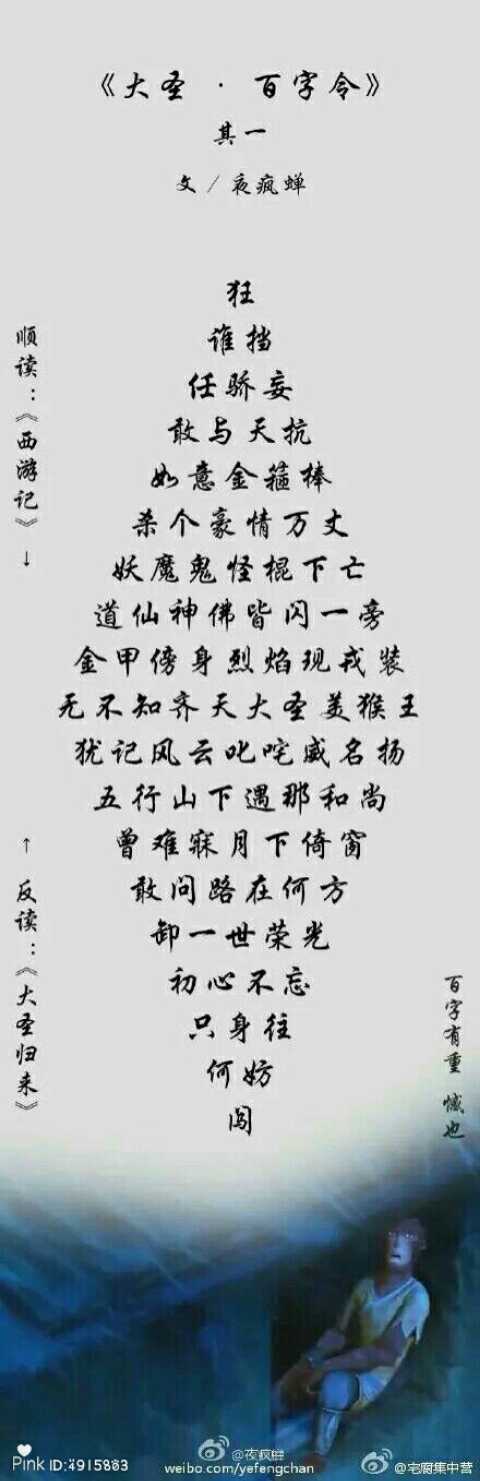 《大圣 · 百字令》
其一
文／夜疯蝉
狂
谁挡
任骄妄
敢与天抗
如意金箍棒
杀个豪情万丈
妖魔鬼怪棍下亡
道仙神佛皆闪一旁
金甲傍身烈焰现戎装
无不知齐天大圣美猴王
犹记风云叱咤威名扬
五行山下遇那和尚
曾难寐月下倚窗
敢问路在何方
卸一世荣光
初心不忘
只身往
何妨
闯
顺读：《西游记》↓
↑ 反读：《大圣归来》
百字有重 憾也
Pink ID:4915883
@夜疯蝉
weibo.com/yefengchan
@宅腐集中营